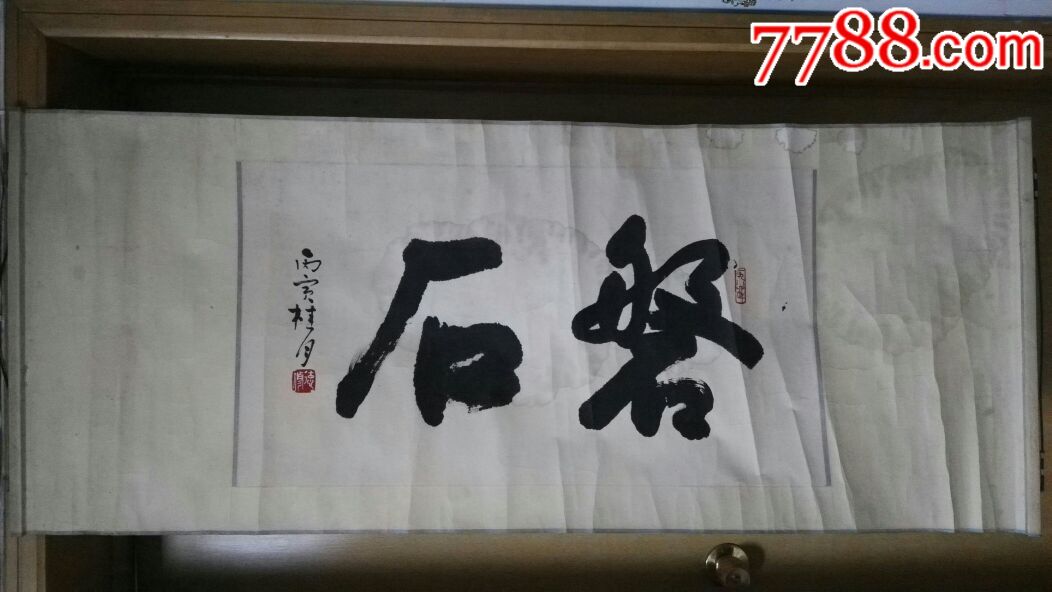 7788.com
磐石
丙寅桂月